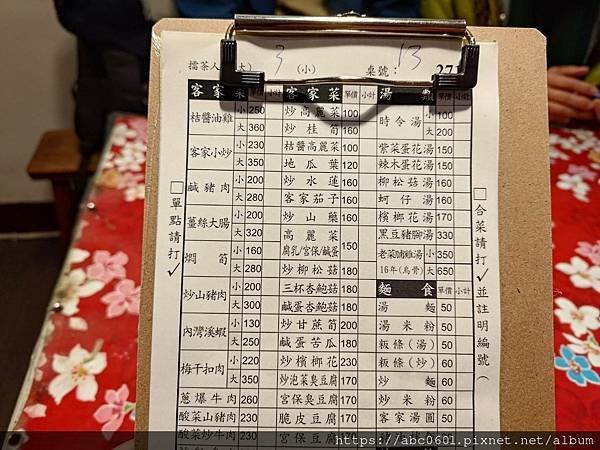 擂茶人 大) 3 (小) 桌號: 13 27
客家菜 單價 小計 客家菜 單價 小計 湯類 單價 小計
桔醬油雞 小 250 炒高麗菜 100 時令湯 小 100
大 360 炒桂筍 160 大 200
客家小炒 小 230 桔醬高麗菜 100 紫菜蛋花湯 150
大 350 地瓜葉 120 辣木蛋花湯 150
鹹豬肉 小 200 炒水蓮 160 柳松菇湯 160
大 280 客家茄子 160 蚵仔湯 160
薑絲大腸 小 200 炒山藥 160 檳榔花湯 170
大 320 高麗菜 腐乳/宮保/鹹蛋 150 黑豆豬腳湯 330
燜筍 小 160 老菜脯雞湯 16年(烏骨) 小 350
大 280 炒柳松菇 180 大 650
炒山豬肉 小 200 三杯杏鮑菇 180 麵食 單價 小計
大 300 鹹蛋杏鮑菇 180 湯麵 50
內灣溪蝦 小 130 炒甘蔗筍 200 湯米粉 50
大 250 鹹蛋苦瓜 180 粄條(湯) 50
梅干扣肉 小 220 炒檳榔花 230 粄條(炒) 60
大 350 炒泡菜臭豆腐 170 炒麵 60
蔥爆牛肉 260 宮保臭豆腐 170 炒米粉 60
酸菜山豬肉 230 脆皮豆腐 170 客家湯圓 50
酸菜炒牛肉 230 宮保豆腐 170
□單點請打✓
□合菜請打✓並註明編號(
https://abc0601.pixnet.net/album